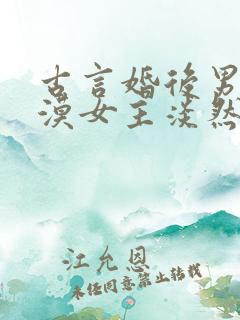 古言婚后男
漠女主淡然
江允恩
未经同意禁止转载